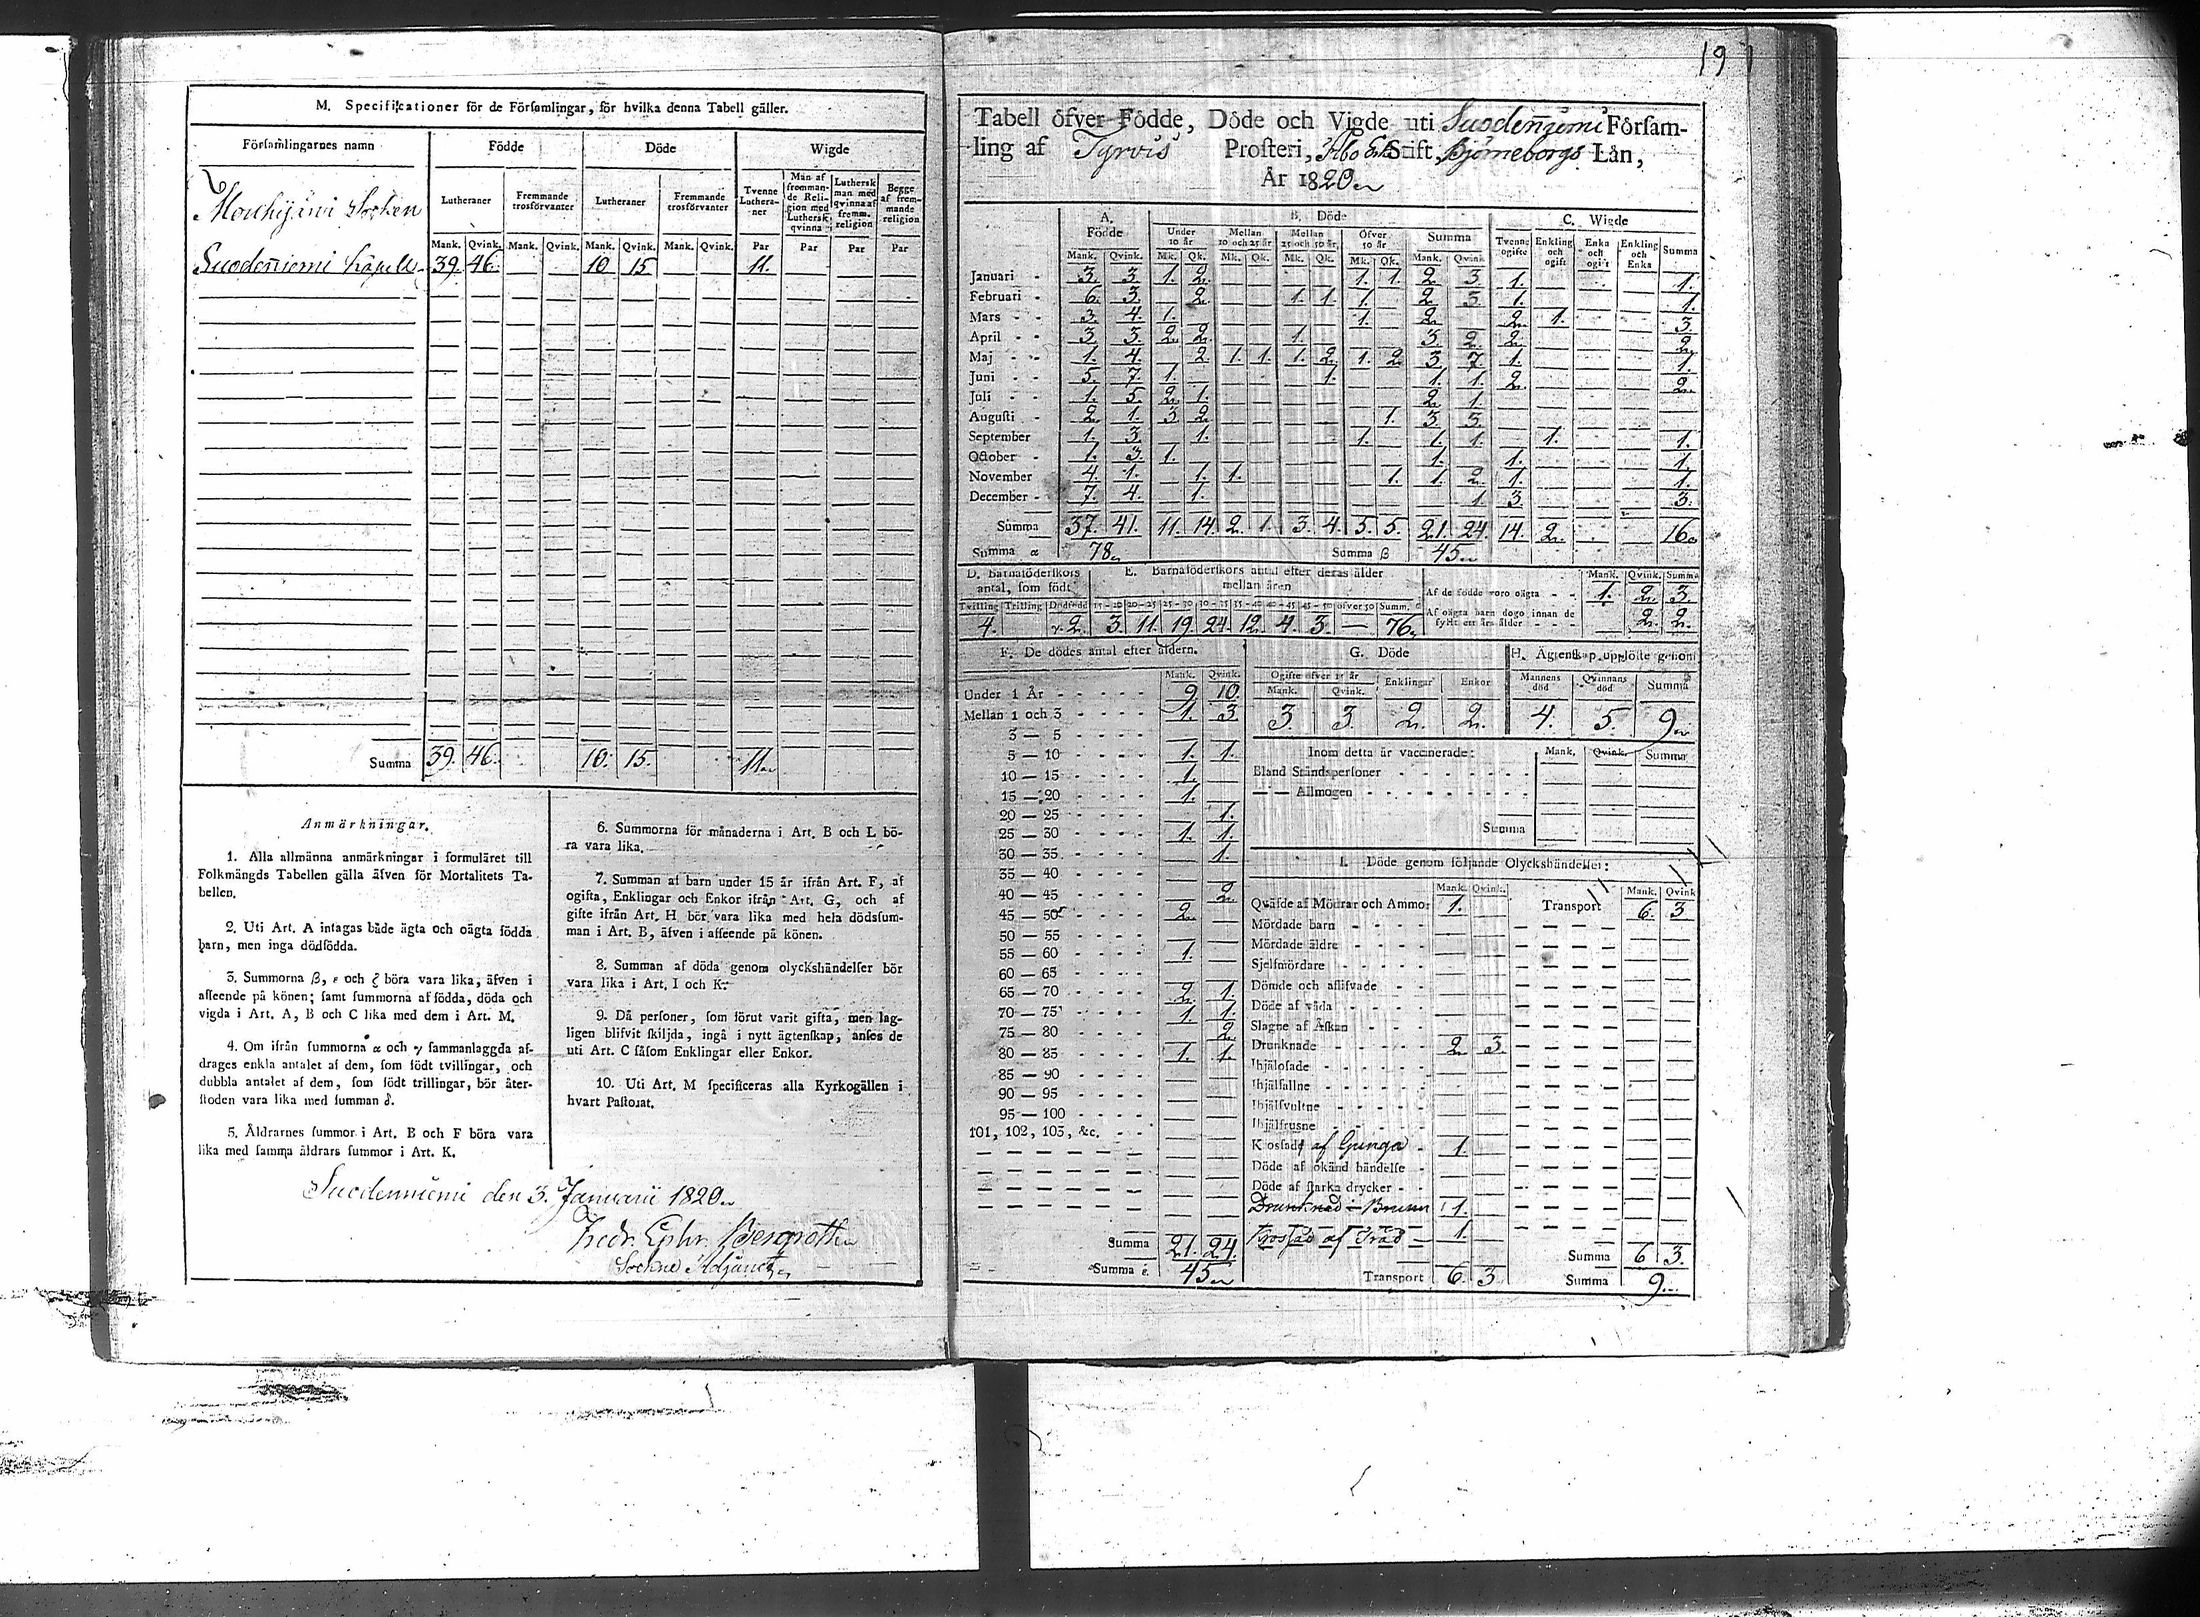 19
M. Specificationer för de Församlingar, för hvilka denna Tabell gäller.
Församlingarnes namn Födde Döde Wigde
Lutheraner Fremmande trosförvanter Lutheraner Fremmande trosförvanter Tvenne Lutheraner Man af fremmande Religion med Luthersk qvinna Luthersk man med qvinna af fremm. religion Begge af fremmande religion
Mank. Qvink. Mank. Qvink. Mank. Qvink. Mank. Qvink. Par Par Par Par
Mouhijärvi Socken
Suodenniemi Capell 39. 46. 10 15 11.
Summa 39. 46. 10. 15. 11.
Anmärkningar.
1. Alla allmänna anmärkningar i formuläret till
Folkmängds Tabellen gälla äfven för Mortalitets Ta-
bellen.
2. Uti Art. A intagas både ägta och oägta födda
barn, men inga dödfödda.
3. Summorna β, ε och ζ böra vara lika, äfven i
afseende på könen; samt summorna af födda, döda och
vigda i Art. A, B och C lika med dem i Art. M.
4. Om ifrån summorna α och γ sammanlaggda af-
drages enkla antalet af dem, som födt tvillingar, och
dubbla antalet af dem, som födt trillingar, bör åter-
stoden vara lika med summan δ.
5. Åldrarnes summor i Art. B och F böra vara
lika med samma åldrars summor i Art. K.
6. Summorna för månaderna i Art. B och L bö-
ra vara lika.
7. Summan af barn under 15 år ifrån Art. F, af
ogifta, Enklingar och Enkor ifrån Art. G, och af
gifte ifrån Art. H bör vara lika med hela dödssum-
man i Art. B, äfven i afseende på könen.
8. Summan af döda genom olyckshändelser bör
vara lika i Art. I och K.
9. Då personer, som förut varit gifta, men lag-
ligen blifvit skiljda, ingå i nytt ägtenskap, anses de
uti Art. C såsom Enklingar eller Enkor.
10. Uti Art. M specificeras alla Kyrkogällen i
hvart Pastorat.
Suodenniemi den 3. Januarii 1820
Fredr. Ephr. Bergroth
Sockne Adjunct
Tabell öfver Födde, Döde och Vigde uti Suodenniemi Försam-
ling af Tyrvis Prosteri, Åbo Stift, Björneborgs Län,
År 1820
A. Födde B. Döde C. Wigde
Under 10 år Mellan 10 och 25 år Mellan 25 och 50 år Öfver 50 år Summa Tvenne ogifte Enkling och ogift Enka och ogift Enkling och Enka Summa
Mank. Qvink. Mk. Qk. Mk. Qk. Mk. Qk. Mk. Qk. Mank. Qvink
Januari 3. 3. 1. 2. 1. 1. 2. 3. 1. 1.
Februari 6. 3. 2. 1. 1. 1. 2 3. 1. 1.
Mars 3. 4. 1. 1. 2. 2. 1. 3
April 3 3. 2. 2. 1. 3. 2. 2. 2.
Maj 1. 4. 2. 1. 1. 1. 2. 1. 2. 3. 7. 1. 1.
Juni 5. 7. 1. 1. 1. 1. 2. 2.
Juli 1. 5. 2. 1. 2. 1.
Augusti 2. 1. 3. 2. 1. 3 3.
September 1. 3. 1. 1. 1. 1. 1. 1.
October 1. 3. 1. 1. 1. 1.
November 4. 1. 1. 1. 1. 1. 2. 1. 1.
December 7. 4. 1. 1. 3. 3.
Summa 37. 41. 11. 14. 2. 1. 3. 4. 5. 5. 21. 24. 14. 2. 16
Summa α 78 Summa β 45
D. Barnaföderskors antal, som födt
Tvilling Trilling Dödfödd
4. γ. 2.
E. Barnaföderskors antal efter deras ålder mellan åren
15-20 20-25 25-30 30-35 35-40 40-45 45-50 öfver 50 Summ. δ
3. 11. 19. 24. 12. 4. 3. — 76
Mank. Qvink. Summa
Af de födde voro oägta 1. 2. 3.
Af oägta barn dogo innan de fyllt ett års ålder 2. 2.
F. De dödes antal efter åldern.
Mank. Qvink.
Under 1 År 9. 10.
Mellan 1 och 3 1. 3
3 — 5
5 — 10 1. 1.
10 — 15 1.
15 — 20 1.
20 — 25 1.
25 — 30 1. 1.
30 — 35 1.
35 — 40
40 — 45 2.
45 — 50 2.
50 — 55
55 — 60 1.
60 — 65
65 — 70 2. 1.
70 — 75 1. 1.
75 — 80 2.
80 — 85 1. 1.
85 — 90
90 — 95
95 — 100
101, 102, 103, &c.
Summa 21. 24.
Summa ε. 45
G. Döde
Ogifte öfver 15 år Enklingar Enkor
Mank. Qvink.
3. 3. 2. 2.
H. Ägtenskap upplöste genom
Mannens död Qvinnans död Summa
4. 5. 9
Inom detta år vaccinerade: Mank. Qvink. Summa
Bland Ståndspersoner
— — Allmogen
Summa
I. Döde genom följande Olyckshändelser:
Mank. Qvink. Mank. Qvink
Qväfde af Mödrar och Ammor 1. Transport 6. 3
Mördade barn
Mördade äldre
Sjelfmördare
Dömde och aflifvade
Döde af våda
Slagne af Åskan
Drunknade 2. 3.
Ihjälosade
Ihjälfallne
Ihjälsvultne
Ihjälfrusne
Krossade af Gunga 1.
Döde af okänd händelse
Döde af starka drycker
Drunknad i Brunn 1.
Krossad af Träd 1.
Transport 6. 3.
Summa 6 3.
Summa 9